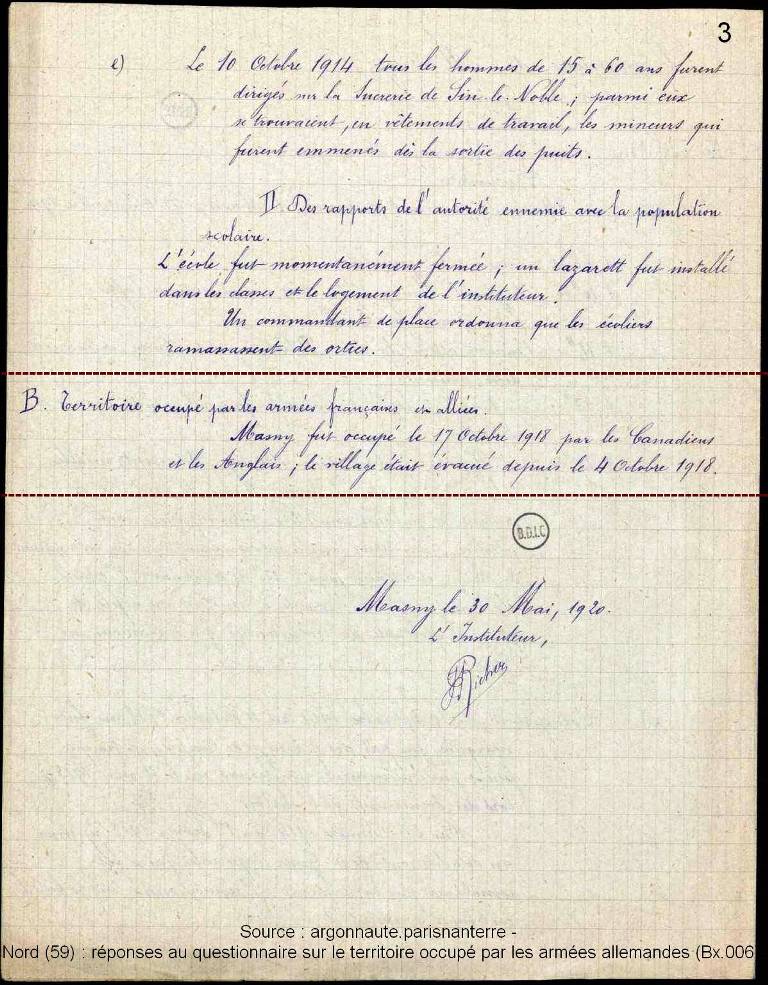 3
e) Le 10 Octobre 1914 tous les hommes de 15 à 60 ans furent
dirigés sur la Sucrerie de Sin-le-Noble ; parmi eux
se trouvaient, en vêtements de travail, les mineurs qui
furent emmenés dès la sortie des puits.
II Des rapports de l'autorité ennemie avec la population
scolaire.
L'école fut momentanément fermée ; un lazarett fut installé
dans les classes et le logement de l'instituteur.
Un commandant de place ordonna que les écoliers
ramassassent des orties.
B. Territoire occupé par les armées françaises et alliées.
Masny fut occupé le 17 Octobre 1918 par les Canadiens
et les Anglais ; le village était évacué depuis le 4 Octobre 1918.
B.D.I.C
Masny le 30 Mai, 1920.
L'Instituteur,
Richer
Source : argonnaute.parisnanterre -
Nord (59) : réponses au questionnaire sur le territoire occupé par les armées allemandes (Bx.006